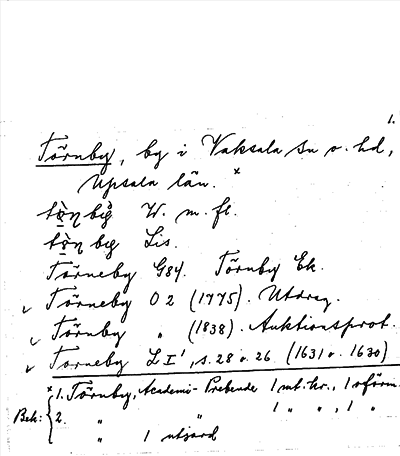 1.
Törnby, by i Vaksala sn o. hd,
Upsala län. x
W. m. fl.
Lis.
Törneby G84. Törnby Ek.
Törneby O 2 (1775). Utdrag.
Törnby " (1838). Auktionsprot.
Torneby L I¹, s. 28 o. 26. (1631 o. 1630)
x 1. Törnby, Academi-Prebende 1 mt. kr., 1
Bek: 2. " " 1 " " , 1 "
" 1 utjord